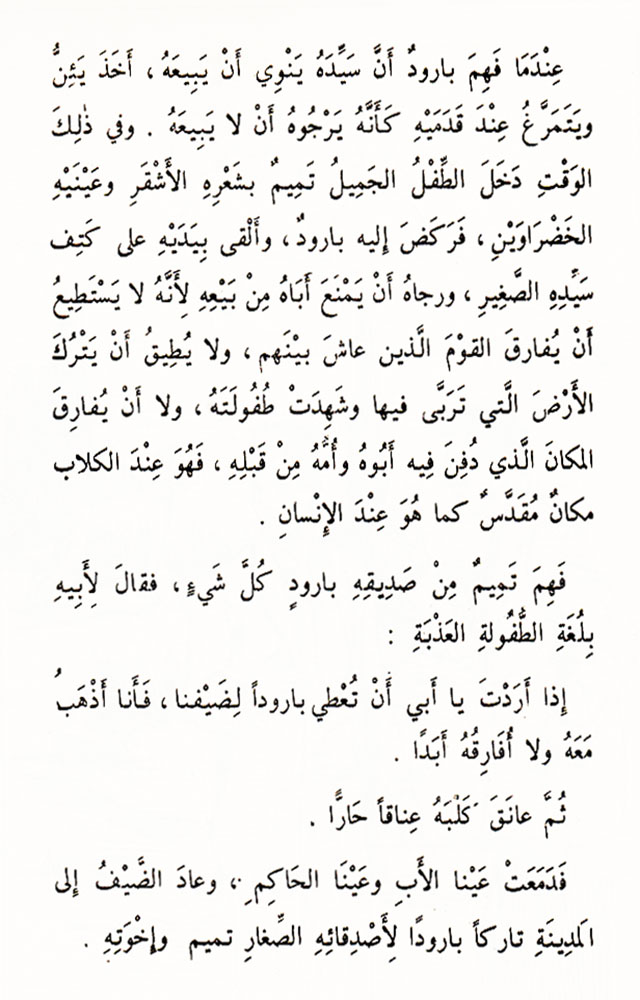 عِنْدَمَا فَهِمَ بارودٌ أَنَّ سَيِّدَهُ يَنْوِي أَنْ يَبِيعَهُ ، أَخَذَ يَئِنُّ
ويَتَمَرَّغُ عِنْدَ قَدَمَيْهِ كَأَنَّهُ يَرْجُوهُ أَنْ لا يَبِيعَهُ . وفي ذٰلِكَ
الوَقْتِ دَخَلَ الطِّفْلُ الجَمِيلُ تَمِيمٌ بشَعْرِهِ الأَشْقَرِ وعَيْنَيْهِ
الخَضْرَاوَيْنِ ، فَرَكَضَ إليه بارودٌ ، وأَلْقى بِيَدَيْهِ على كَتِفِ
سَيِّدِهِ الصَّغِيرِ ، ورجاهُ أَنْ يَمْنَعَ أَبَاهُ مِنْ بَيْعِهِ لِأَنَّهُ لا يَسْتَطِيعُ
أَنْ يُفارقَ القوْمَ الَّذين عاشَ بيْنَهم ، ولا يُطِيقُ أَنْ يَتْرُكَ
الأَرْضَ الَّتي تَرَبَّى فيها وشَهِدَتْ طُفُولَتَهُ ، ولا أَنْ يُفارِقَ
المكانَ الَّذي دُفِنَ فِيه أَبُوهُ وأُمُّهُ مِنْ قَبْلِهِ ، فَهُوَ عِنْدَ الكلاب
مكانٌ مُقَدَّسٌ كما هُوَ عِنْدَ الإِنْسانِ .
فَهِمَ تَمِيمٌ مِنْ صَدِيقِهِ بارودٍ كُلَّ شَيءٍ ، فقالَ لِأَبِيهِ
بِلُغَةِ الطُّفُولةِ العَذْبَةِ :
إِذا أَرَدْتَ يا أَبي أَنْ تُعْطي باروداً لِضَيْفنا ، فَأَنا أَذْهَبُ
مَعَهُ ولا أُفَارِقُهُ أَبَدًا .
ثُمَّ عانَقَ كَلْبَهُ عِناقاً حَارًّا .
فَدَمَعَتْ عَيْنا الأَبِ وعَيْنَا الحَاكِمِ ، وعادَ الضَّيْفُ إلى
المَدِينَةِ تاركاً بارودًا لِأَصْدِقائِهِ الصِّغارِ تميم وإخْوَتِهِ .